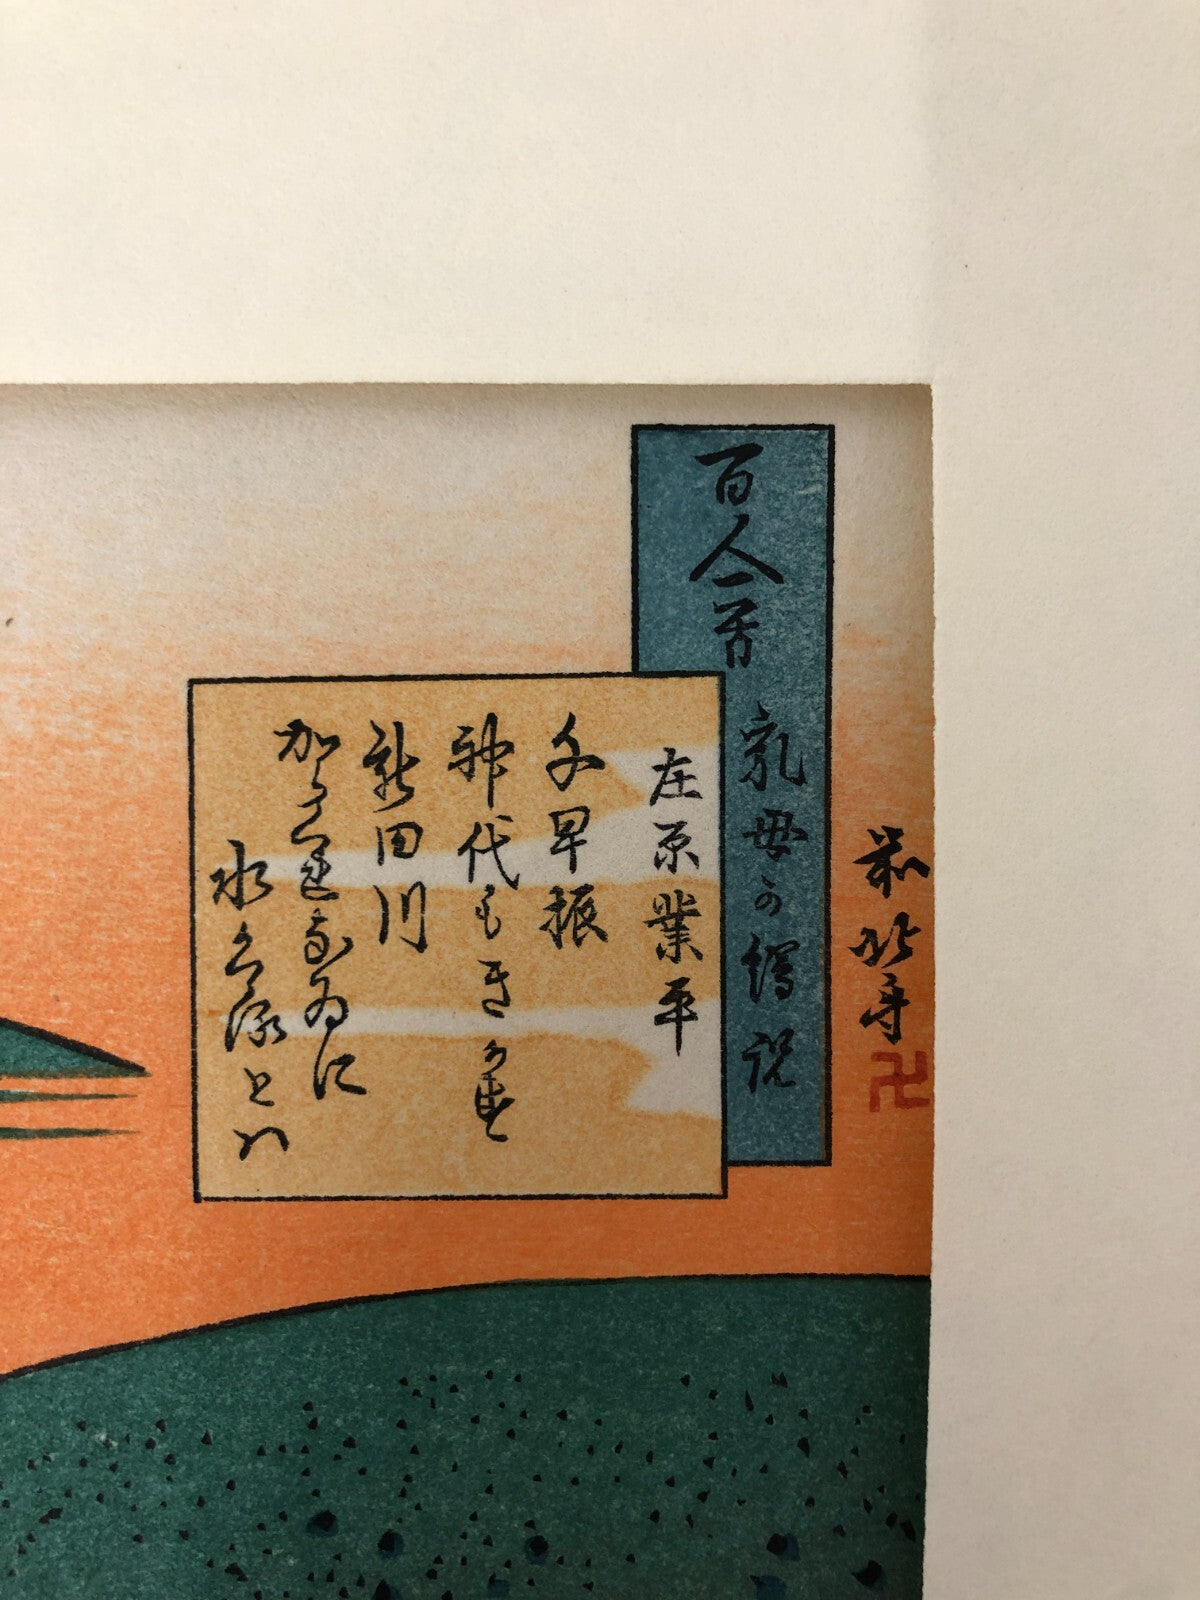 前北斎卍
百人一首
乳母か縕説
在原業平
千早振
神代もきかす
龍田川
加らくれなゐに
水くゝるとハ